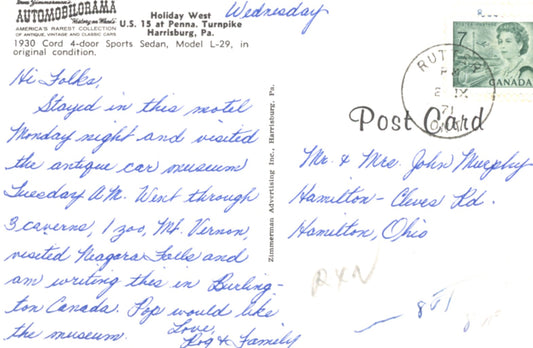 Gene Zimmerman's
AUTOMOBILORAMA
"History on Wheels"
AMERICA'S RAREST COLLECTION
OF ANTIQUE, VINTAGE AND CLASSIC CARS
Holiday West
U.S. 15 at Penna. Turnpike
Harrisburg, Pa.
1930 Cord 4-door Sports Sedan, Model L-29, in
original condition.
Wednesday
Hi Folks,
Stayed in this motel
Monday night and visited
the antique car museum
Tuesday A.M. Went through
3 caverns, 1 zoo, Mt. Vernon,
visited Niagara Falls and
am writing this in Burling-
ton Canada. Pop would like
the museum.
Love,
Rog & Family
Zimmerman Advertising Inc., Harrisburg, Pa.
7
CANADA
PM
2 IX
71
ONT
Post Card
Mr. & Mrs. John Murphy
Hamilton - Cleves Rd.
Hamilton, Ohio